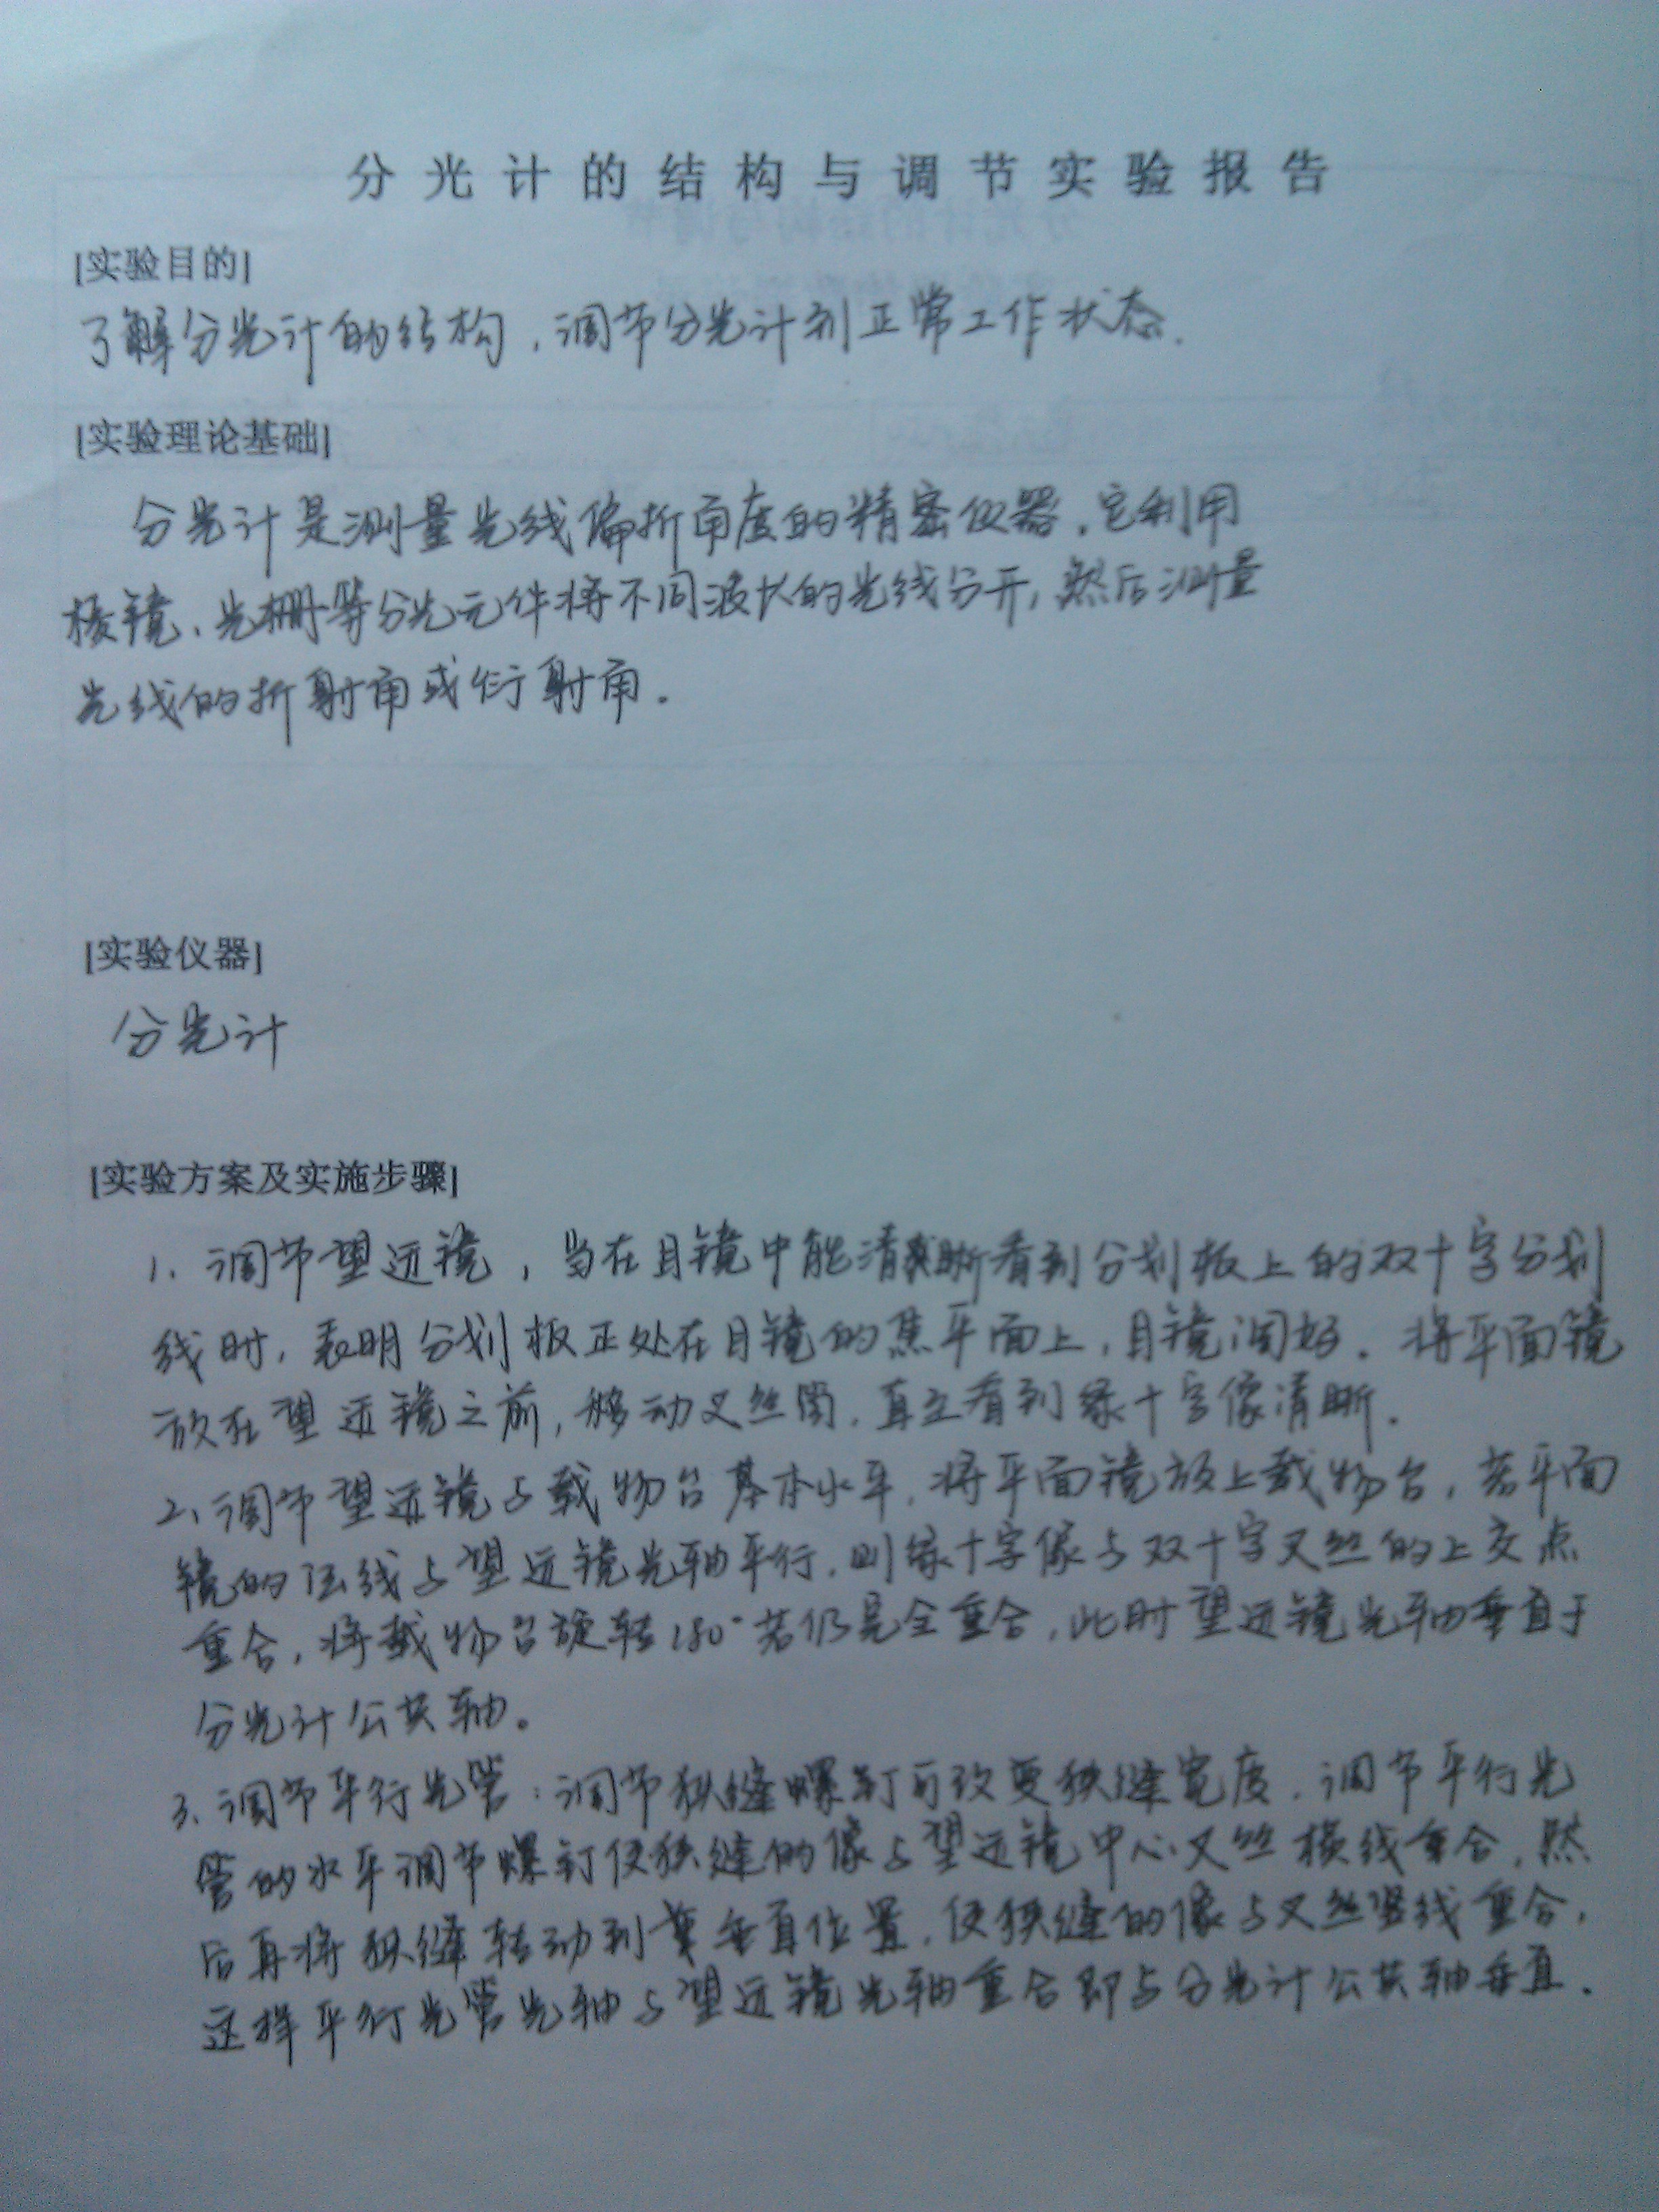 分光计的结构与调节实验报告
[实验目的]
了解分光计的结构，调节分光计到正常工作状态.
[实验理论基础]
分光计是测量光线偏折角度的精密仪器.它利用
棱镜、光栅等分光元件将不同波长的光线分开,然后测量
光线的折射角或衍射角.
[实验仪器]
分光计
[实验方案及实施步骤]
1. 调节望远镜，当在目镜中能清晰看到分划板上的双十字分划
线时,表明分划板正处在目镜的焦平面上,目镜调好.将平面镜
放在望远镜之前,移动叉丝筒,直至看到绿十字像清晰.
2、调节望远镜与载物台基本水平,将平面镜放上载物台,若平面
镜的法线与望远镜光轴平行,则绿十字像与双十字叉丝的上交点
重合,将载物台旋转180°若仍完全重合,此时望远镜光轴垂直于
分光计公共轴。
3、调节平行光管:调节狭缝螺钉可改变狭缝宽度.调节平行光
管的水平调节螺钉使狭缝的像与望远镜中心叉丝横线重合,然
后再将狭缝转动到垂直位置,使狭缝的像与叉丝竖线重合,
这样平行光管光轴与望远镜光轴重合即与分光计公共轴垂直.